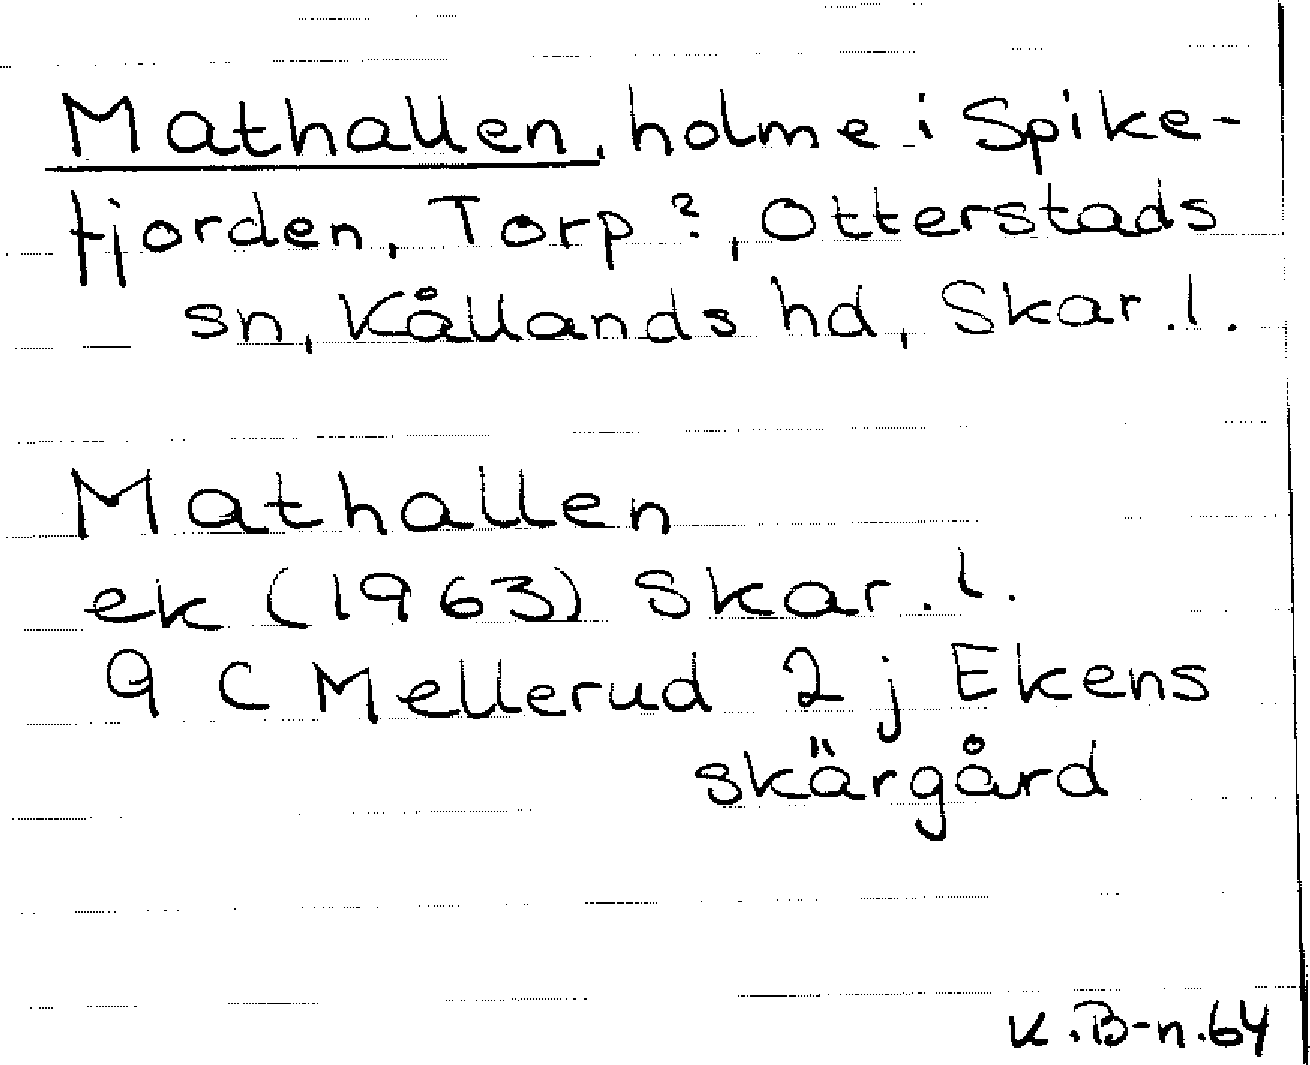 Mathallen, holme i Spike-
fjorden, Torp?, Otterstads
sn, Kållands hd, Skar.l.
Mathallen
ek (1963) Skar.l.
9 C Mellerud 2 j Ekens
skärgård
K.B-n.64